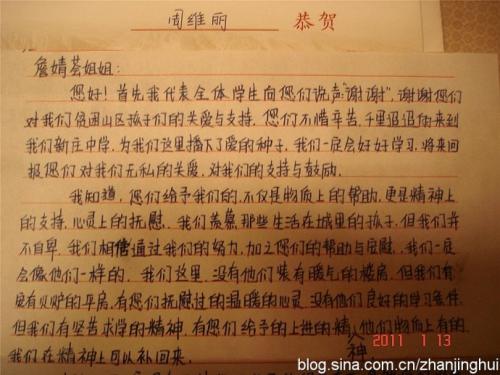 周维丽 恭贺
詹婧荟姐姐：
您好！首先我代表全体学生向您们说声"谢谢"，谢谢您们
对我们贫困山区孩子们的关爱与支持。您们不惜辛苦，千里迢迢的来到
我们新庄中学，为我们这里播下了爱的种子，我们一定会好好学习，将来回
报您们对我们无私的关爱，对我们的支持与鼓励。
我知道，您们给予我们的，不仅是物质上的帮助，更是精神上
的支持，心灵上的抚慰。我们羡慕那些生活在城里的孩子，但我们并
不自卑，我们相信通过我们的努力，加之您们的帮助与安慰，我们一定
会像他们一样的。我们这里，没有他们装有暖气的楼房，但我们有
安有火炉的平房，有您们抚慰过的温暖的心灵，没有他们良好的学习条件
但我们有坚苦求学的精神，有您们给予的上进的精神
他们物质上有的
我们在精神上可以补回来。
2011 1 13
blog.sina.com.cn/zhanjinghui